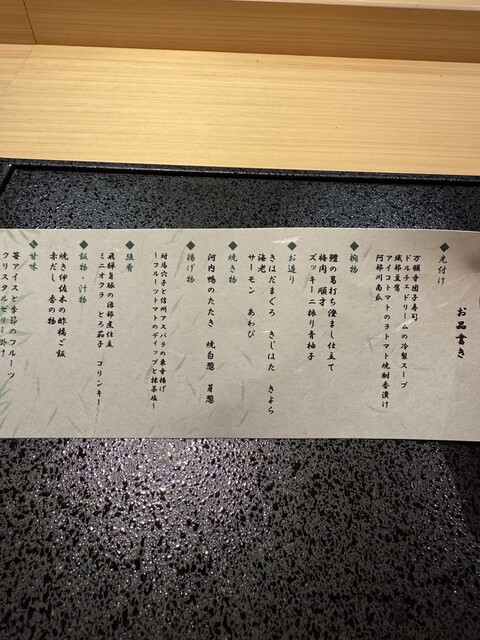 お品書き
◆先付け
万願寺団子寿司
ドルチェドリームの冷製スープ
織部豆腐
アイコトマトのラトマト焼酎香漬け
阿部川南瓜
◆椀物
鱧の葛打ち澄まし仕立て
梅肉 順才
ズッキーニ 振り青柚子
◆お造り
きはだまぐろ きじはた きよら
海老
サーモン あわび
◆焼き物
河内鴨のたたき 焼白葱 芽葱
◆揚げ物
対馬穴子と信州アスパラの東寺揚げ
～フルーツトマトのディップと抹茶塩～
◆強肴
飛騨旨豚の治部煮仕立
ミニオクラ とろ茄子 コリンキー
◆飯物・汁物
焼き伊佐木の酢橘ご飯
赤だし 香の物
◆甘味
苺アイスと季節のフルーツ
クリスタルゼリー掛け